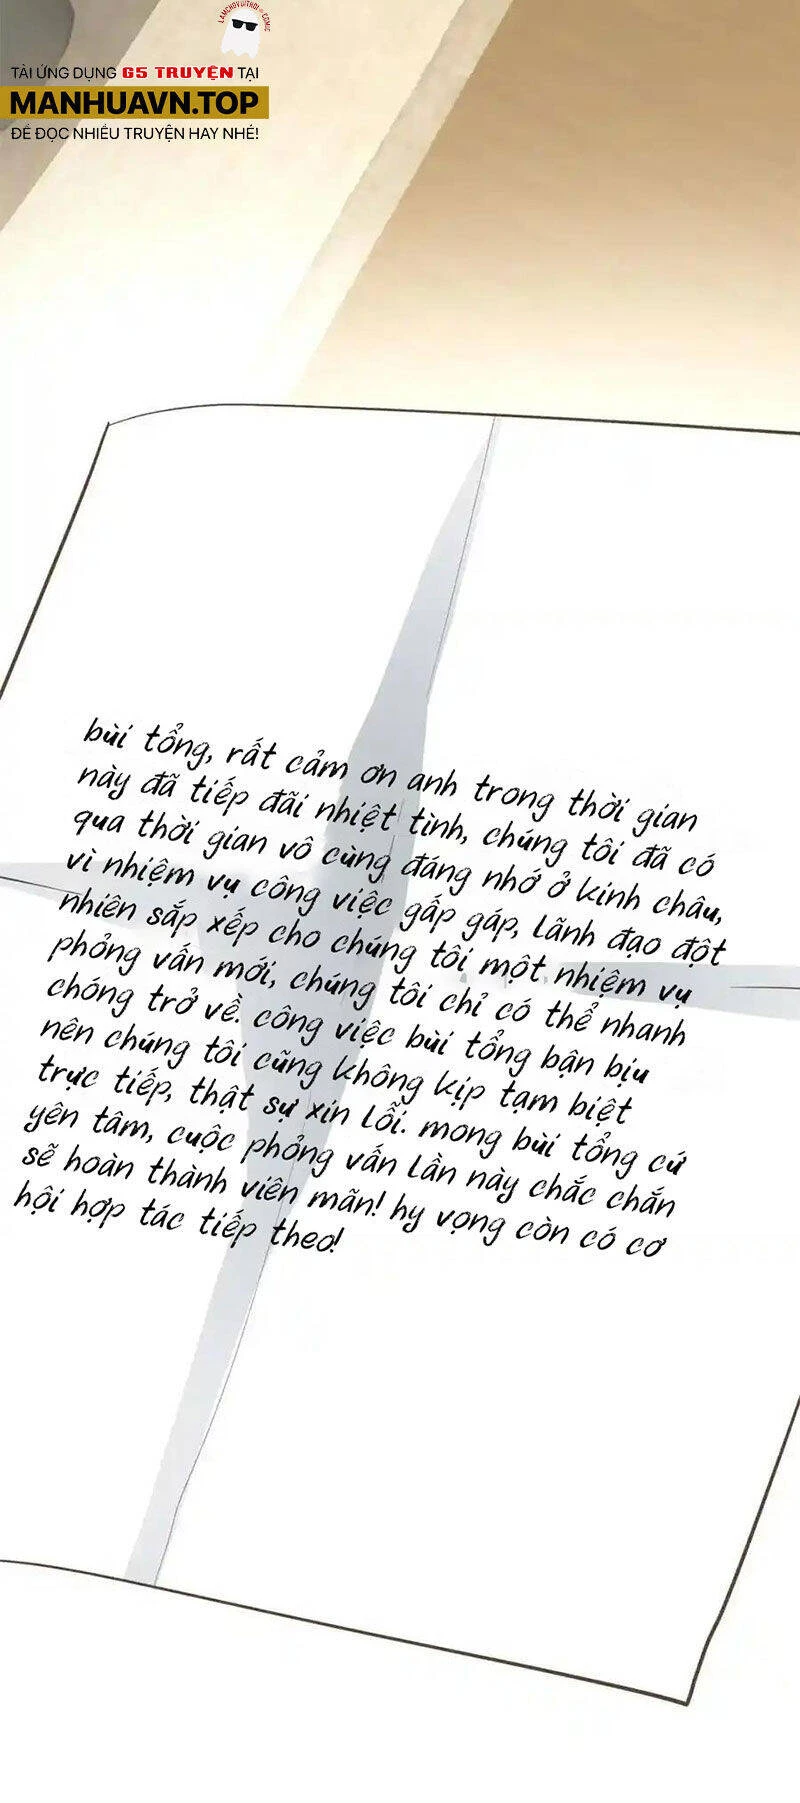 LAMCHOVUITHOI.COMIC
TẢI ỨNG DỤNG G5 TRUYỆN TẠI
MANHUAVN.TOP
ĐỂ ĐỌC NHIỀU TRUYỆN HAY NHÉ!
bùi tổng, rất cảm ơn anh trong thời gian
này đã tiếp đãi nhiệt tình, chúng tôi đã có
qua thời gian vô cùng đáng nhớ ở kinh châu,
vì nhiệm vụ công việc gấp gáp, lãnh đạo đột
nhiên sắp xếp cho chúng tôi một nhiệm vụ
phỏng vấn mới, chúng tôi chỉ có thể nhanh
chóng trở về. công việc bùi tổng bận bịu
nên chúng tôi cũng không kịp tạm biệt
trực tiếp, thật sự xin lỗi. mong bùi tổng cứ
yên tâm, cuộc phỏng vấn lần này chắc chắn
sẽ hoàn thành viên mãn! hy vọng còn có cơ
hội hợp tác tiếp theo!